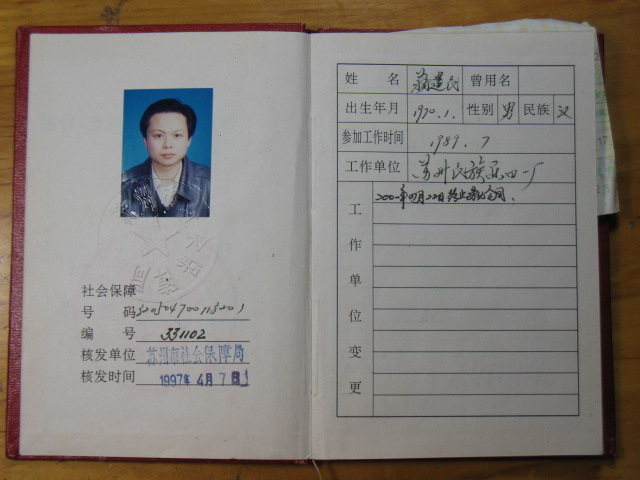 社会保障
号 码 320504700113001
编 号 331102
核发单位 苏州市社会保障局
核发时间 1997年4月7日
姓 名 曾用名
出生年月 1970.1. 性别 男 民族 汉
参加工作时间 1989.7
工作单位 苏州民族乐四一厂
2001年4月22日终止劳动合同.
工作单位变更